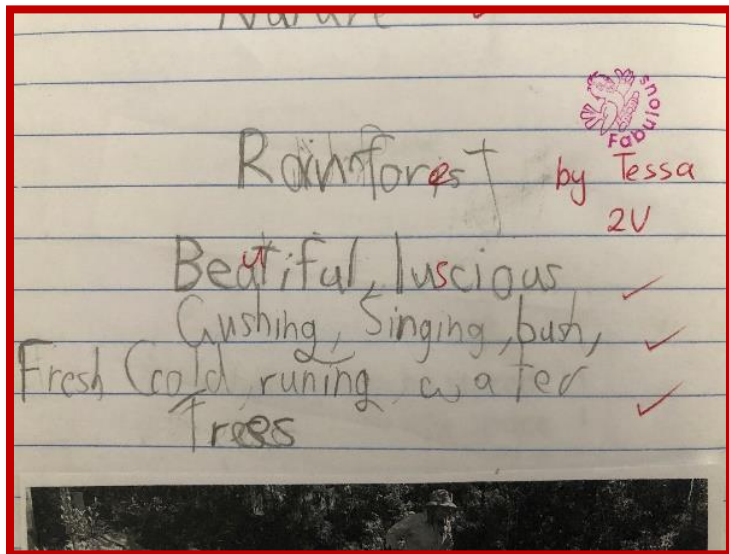 Nature
Fabulous
Rainforest
by Tessa
2V
Beautiful, luscious
Gushing, Singing, bush,
Fresh Cold, runing, water
Trees